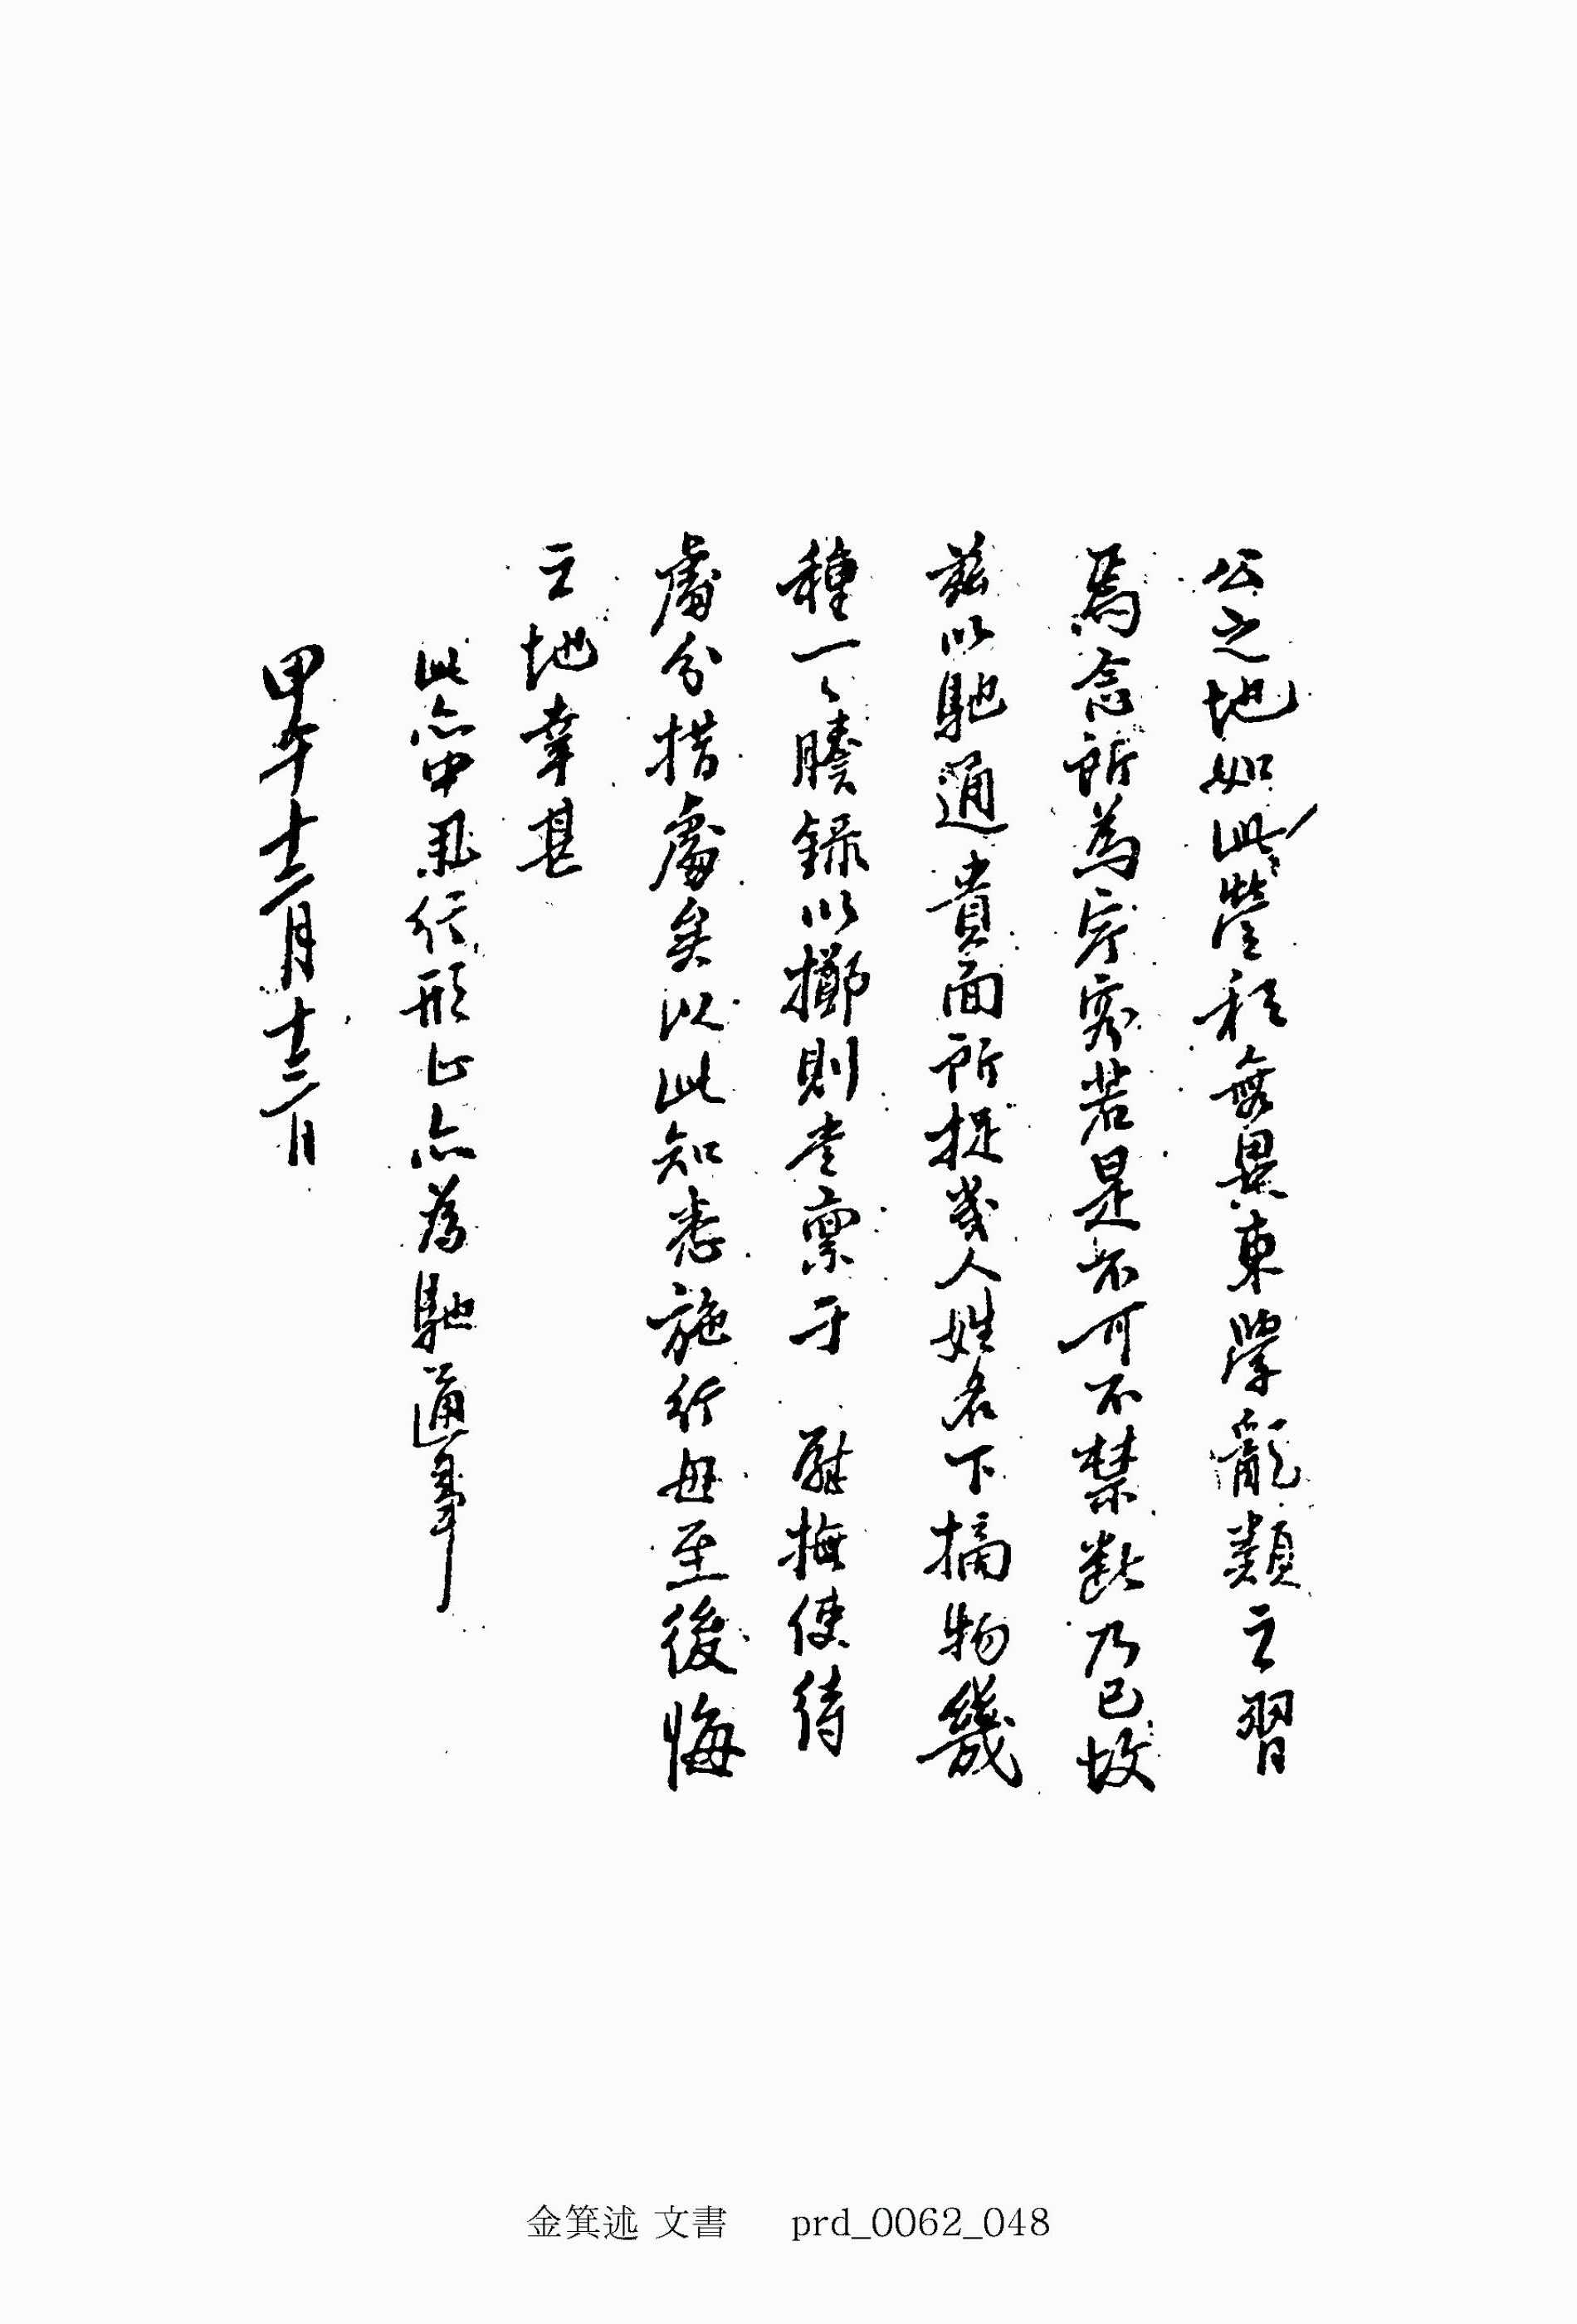 公之地如此營私無異東學亂類之習
焉念所為究若是不可不禁斷乃已故
玆以馳通貴面所捉幾人姓名下摘物幾
種一〻謄錄以擲則稟于 慰撫使待
處分措處矣以此知悉施行毋至後悔
之地幸甚
此亦中行形止亦為馳通事
甲午十二月十二日
金箕述 文書 prd_0062_048